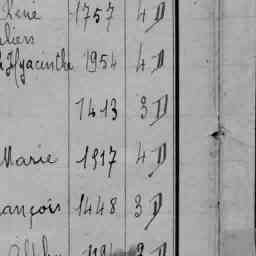 René 1757 4 D
Hyacinthe 1954 4 D
1413 3 D
Marie 1917 4 D
ançois 1448 3 D
3 D